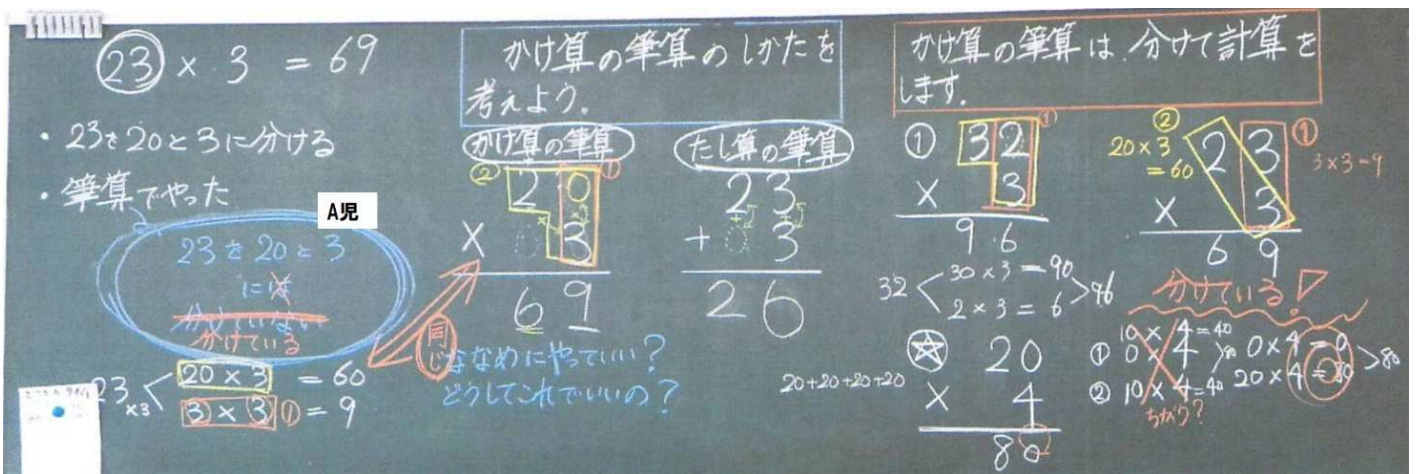 23 × 3 = 69
・23を20と3に分ける
・筆算でやった
A児
23を20と3
には
分けていない
分けている
23 ×3
20×3 = 60
3×3 ① = 9
同じ
かけ算の筆算のしかたを
考えよう。
かけ算の筆算
② 20 ①
× 03
69
たし算の筆算
23
+ 03
26
ななめにやっていい?
どうしてこれでいいの?
かけ算の筆算は、分けて計算を
します。
① 32 ①
× 3
96
32
30×3=90
2×3=6
96
② 23 ①
20×3
=60
3×3=9
× 3
69
分けている!
20+20+20+20
20
× 4
80
10×4=40
① 0×4
80
② 10×4=40
ちがう?
0×4=0
20×4=80
80